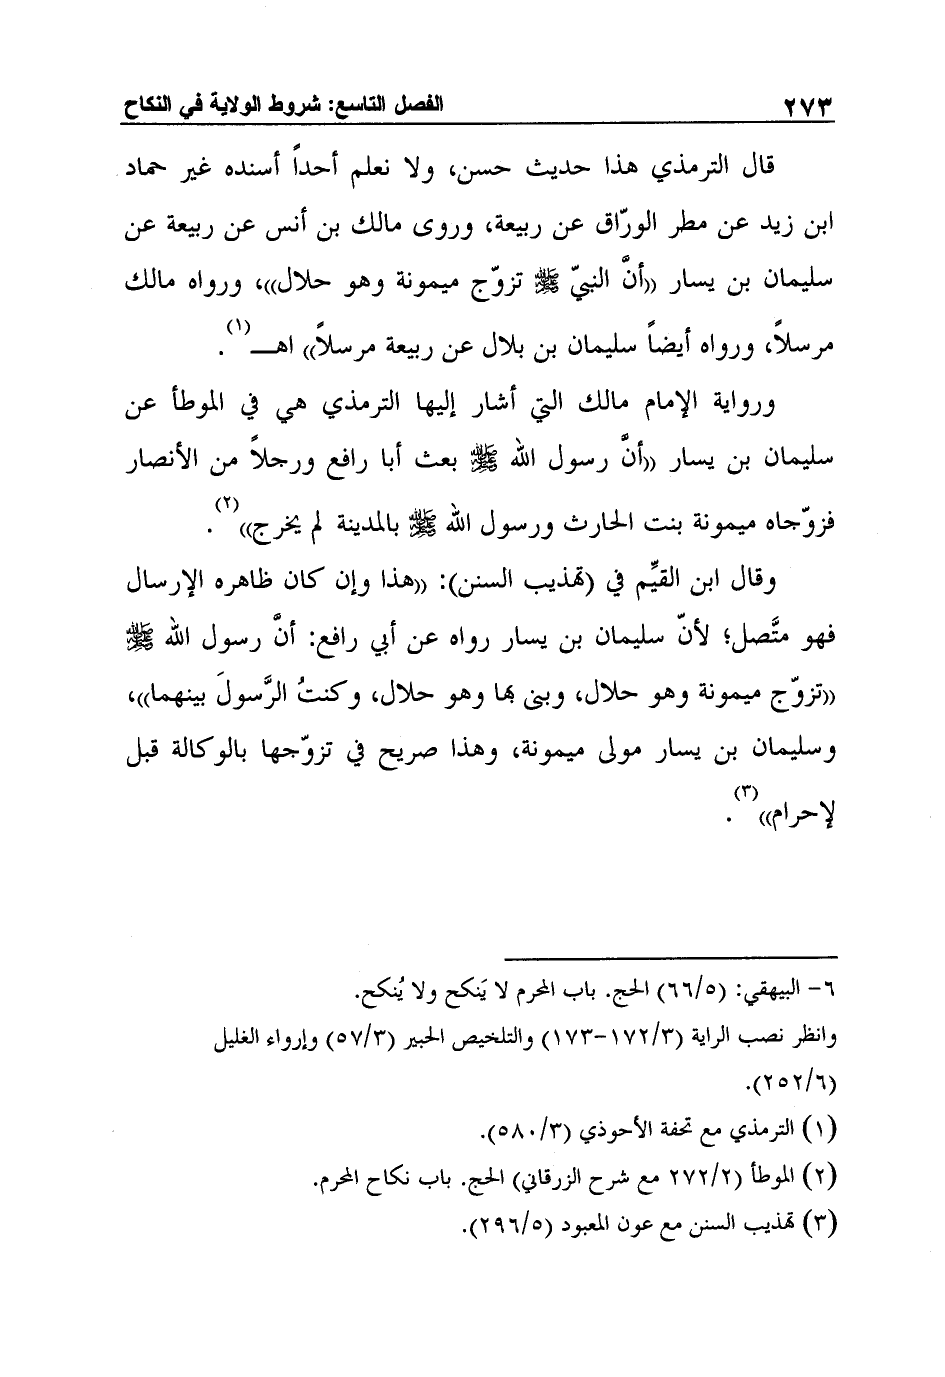 ٢٧٣ الفصل التاسع: شروط الولاية في النكاح
قال الترمذي هذا حديث حسن، ولا نعلم أحداً أسنده غير حماد
ابن زيد عن مطر الورّاق عن ربيعة، وروى مالك بن أنس عن ربيعة عن
سليمان بن يسار ((أنَّ النبيّ ﷺ تزوّج ميمونة وهو حلال))، ورواه مالك
مرسلاً، ورواه أيضاً سليمان بن بلال عن ربيعة مرسلاً)) اهـ(١).
ورواية الإمام مالك التي أشار إليها الترمذي هي في الموطأ عن
سليمان بن يسار ((أنَّ رسول الله ﷺ بعث أبا رافع ورجلاً من الأنصار
فزوّجاه ميمونة بنت الحارث ورسول الله ﷺ بالمدينة لم يخرج))(٢).
وقال ابن القيِّم في (تهذيب السنن): ((هذا وإن كان ظاهره الإرسال
فهو متَّصل؛ لأنّ سليمان بن يسار رواه عن أبي رافع: أنَّ رسول الله ﷺ
((تزوّج ميمونة وهو حلال، وبنى بها وهو حلال، وكنتُ الرَّسولَ بينهما))،
وسليمان بن يسار مولى ميمونة، وهذا صريح في تزوّجها بالوكالة قبل
لإحرام))(٣).
٦- البيهقي: (٦٦/٥) الحج. باب المحرم لا يَنكح ولا يُنكح.
وانظر نصب الراية (١٧٢/٣-١٧٣) والتلخيص الحبير (٥٧/٣) وإرواء الغليل
(٢٥٢/٦).
(١) الترمذي مع تحفة الأحوذي (٥٨٠/٣).
(٢) الموطأ (٢٧٢/٢ مع شرح الزرقاني) الحج. باب نكاح المحرم.
(٣) تهذيب السنن مع عون المعبود (٢٩٦/٥).